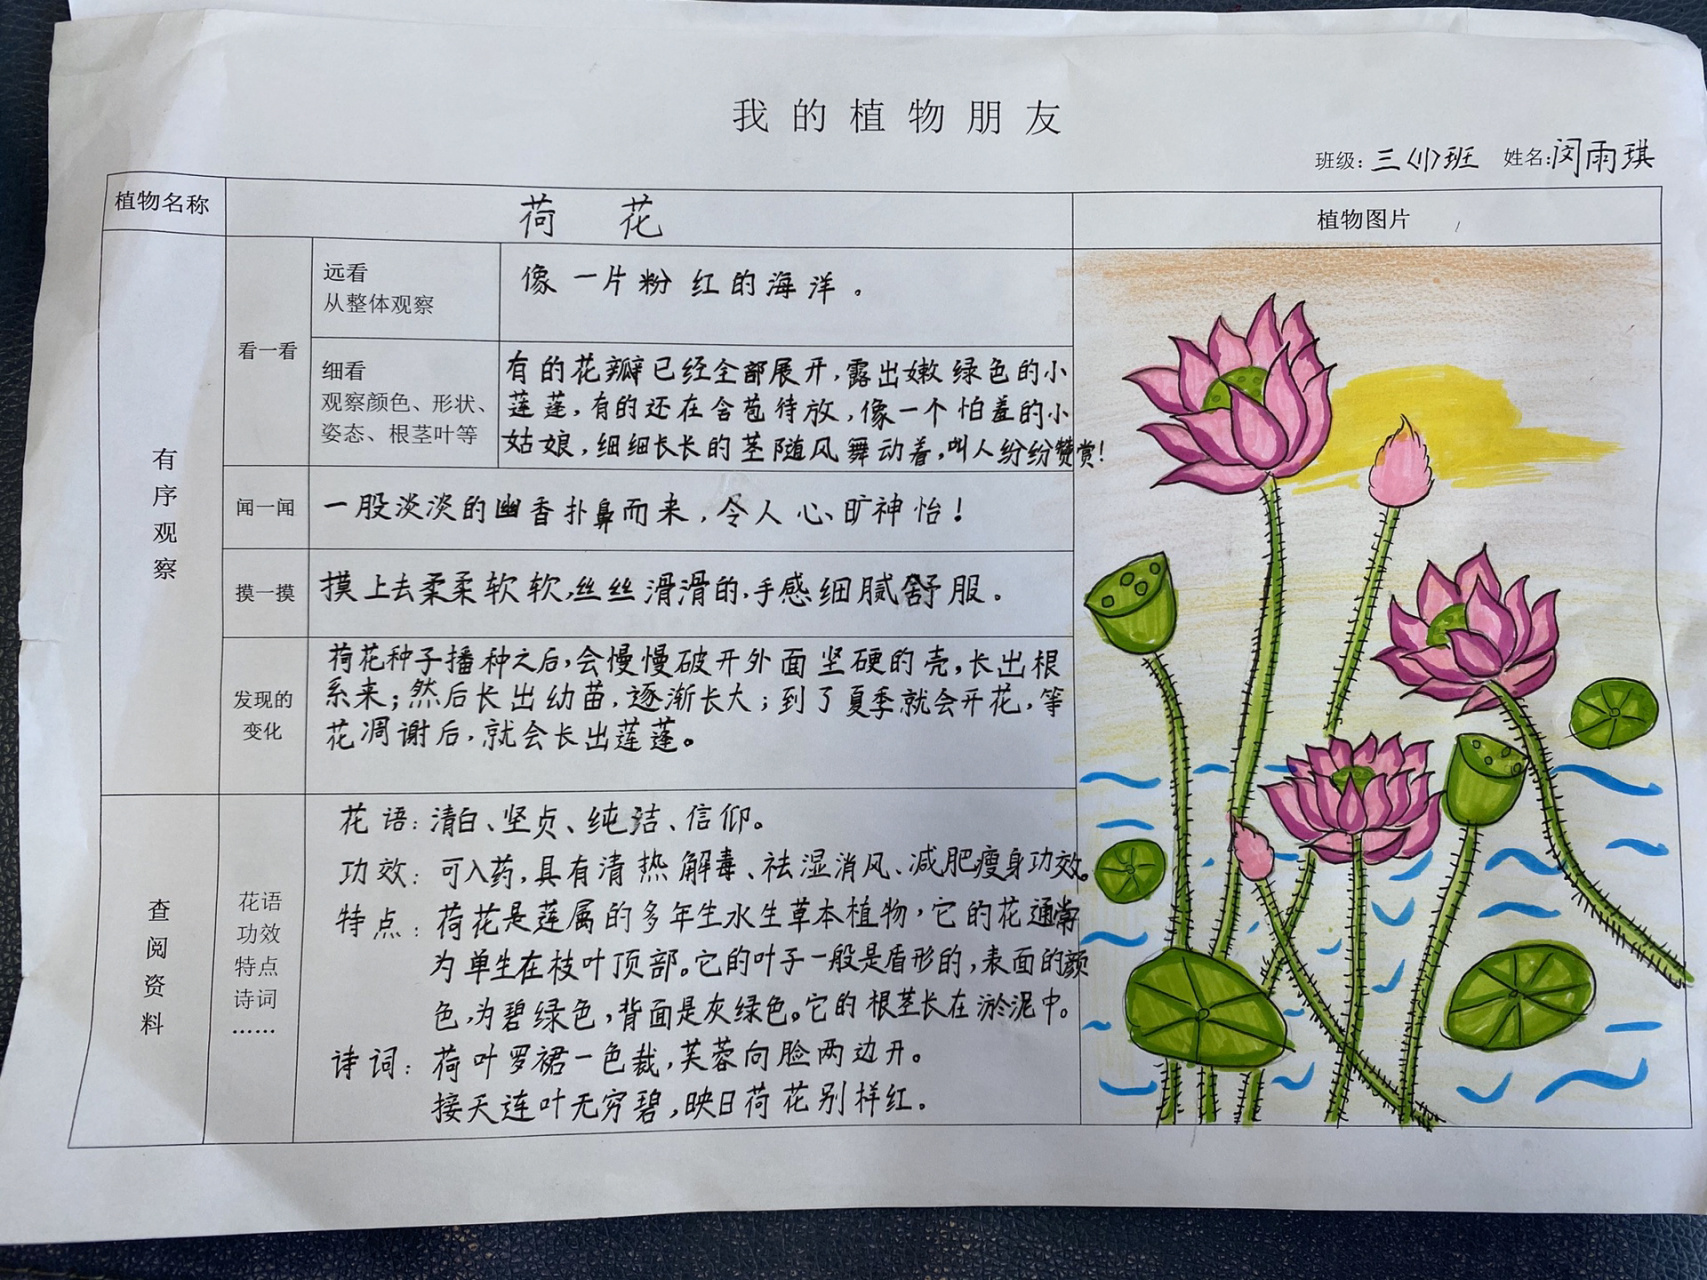 我的植物朋友
班级：三(11)班 姓名：闵雨琪
植物名称
荷 花
植物图片
有序观察
看一看
远看
从整体观察
像一片粉红的海洋。
细看
观察颜色、形状、
姿态、根茎叶等
有的花瓣已经全部展开，露出嫩绿色的小
莲蓬，有的还在含苞待放，像一个怕羞的小
姑娘，细细长长的茎随风舞动着，叫人纷纷赞赏！
闻一闻
一股淡淡的幽香扑鼻而来，令人心旷神怡！
摸一摸
摸上去柔柔软软，丝丝滑滑的，手感细腻舒服。
发现的
变化
荷花种子播种之后，会慢慢破开外面坚硬的壳，长出根
系来；然后长出幼苗，逐渐长大；到了夏季就会开花，等
花凋谢后，就会长出莲蓬。
查阅资料
花语
功效
特点
诗词
……
花语：清白、坚贞、纯洁、信仰。
功效：可入药，具有清热解毒、祛湿消风、减肥瘦身功效。
特点：荷花是莲属的多年生水生草本植物，它的花通常
为单生在枝叶顶部。它的叶子一般是盾形的，表面的颜
色，为碧绿色，背面是灰绿色。它的根茎长在淤泥中。
诗词：荷叶罗裙一色裁，芙蓉向脸两边开。
接天连叶无穷碧，映日荷花别样红。